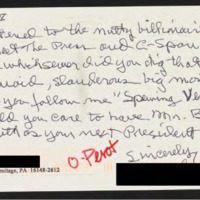 II
tered to the nutty billionaire
at the Press and C-Span
which sewer did you dig that
uoid, slanderous big mo
you follow me "Spewing Ve
ld you care to have Mr. B
with as your next President
Sincerely,
O-Perot
rmitage, PA 16148-2612